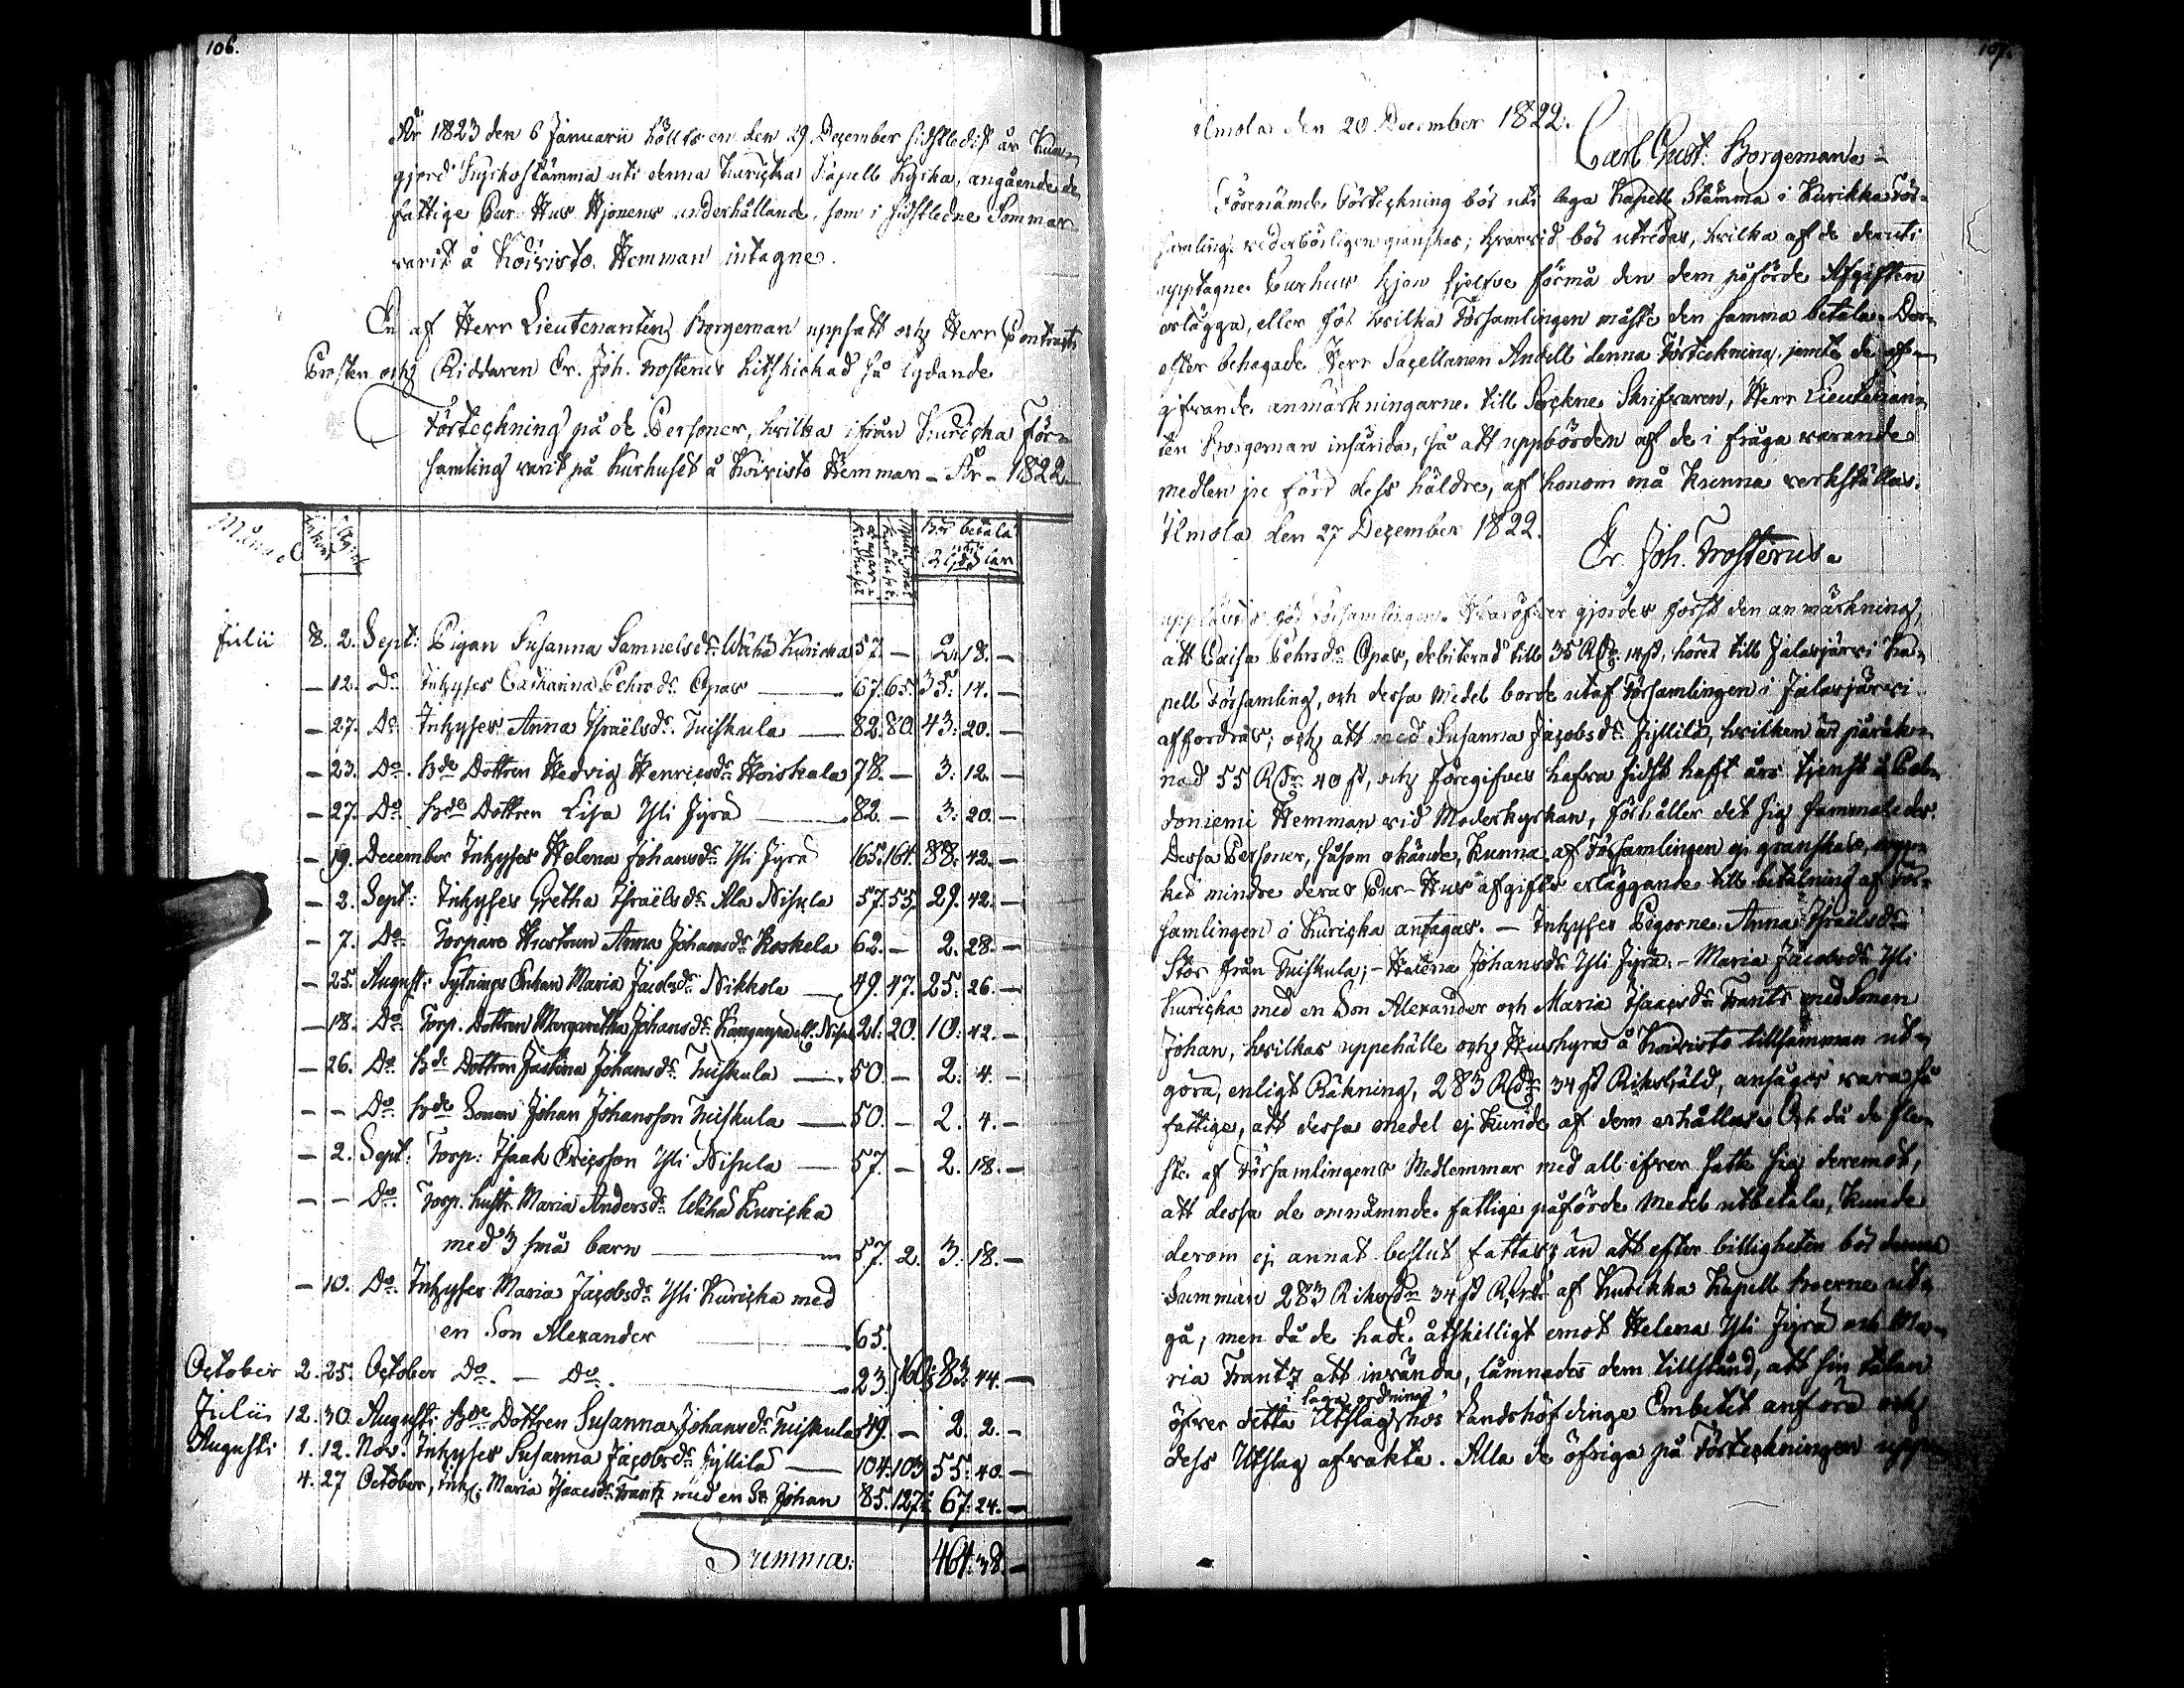 106.
År 1823 den 6 Januarii hölts en den 29 December sidstledit år kun-
gjord Kyrkostämma uti denna Kuricka Capell Kyrka, angående de
fattige Cur-Hus Hjonens underhållande, som i sidstledne Sommar
varit å Koivisto Hemman intagne.
En af Herr Lieutenanten Borgeman uppsatt och Herr Contracts
Prosten och Riddaren Er. Joh. Frosterus hitskickad så lydande
Förteckning på de Personer, hvilka ifrån Kuricka För-
samling varit på Kurhuset å Koivisto Hemman - År - 1822
Månad Inkom Utgick dagar i Kurhuset Kurhuset bör betala uti Rgds lar
Julii 8. 2. Sept: Pigan Susanna Samuelsdr Wähä Kuricka 57. — 2. 18. —
— 12. Do Inhyses Catharina Pehrsdr Opas — 67. 65. 35: 14. —
— 27. Do Inhyses Anna Israëlsdr Tuiskula — 82. 80. 43: 20. —
— 23. Do. Bde Dottren Hedvig Henricsdr Hoiskala 78. — 3: 12. —
— 27. Do Bde Dottren Lisa Yli Jyrä — 82. — 3: 20. —
— 19. December Inhyses Helena Johansdr Yli Jyrä 165. 164. 88: 42. —
— 2. Sept: Inhyses Gretha Israëlsdr Ala Nisula 57. 55. 29. 42. —
— 7. Do Torpare Hustrun Anna Johansdr Koskela 62. — 2. 28. —
— 25. Augusti Sytnings Enkan Maria Jacobsdr Nikkola — 49. 47. 25: 26. —
— 18. Do Torp. Dottren Margaretha Johansdr 21. 20. 10: 42. —
— 26. Do Bde Dottren Justina Johansdr Tuiskula — 50. — 2: 4. —
— — Do Bde Sonen Johan Johansson Tuiskula — 50. — 2. 4. —
— 2. Sept: Torp: Isaak Ericsson Yli Nisula — 57. — 2. 18. —
— — Do Torp. hustr. Maria Andersdr Wähä Kuricka
med 3 små barn — 57. 2. 3: 18. —
— 10. Do Inhyses Maria Jacobsdr Yli Kuricka med
en Son Alexander — 65.
October 2. 25. October Do. — Do. — 23. 160: 83: 44. —
Julii 12. 30. Augusti Bde Dottren Susanna Johansdr Tuiskula 49. — 2. 2. —
Augusti 1. 12. Nov. Inhyses Susanna Jacobsdr Jyllilä — 104. 103 55: 40. —
4. 27 October, Inh. Maria Isaacsdr Frantz med en Sn Johan 85. 127: 67: 24. —
Summa: 464: 38. —
107.
Ilmola den 20 December 1822.
Carl Gust. Borgeman
Förenämde Förteckning bör uti laga Kapell Stämma i Kurikka För-
samling vederbörligen granskas; hvarvid bör utredas, hvilka af de deruti
upptagne Curhus hjon sjelfve förmå den dem påförde Afgiften
erlägga, eller för hvilka Församlingen måste den samma betala. Der-
efter behagade Herr Sacellanen Andell denna Förteckning, jemte de af-
gifvande anmärkningarne till Sockne Skrifvaren, Herr Lieutenan-
ten Borgeman insända, så att uppbörden af de i fråga varande
medlen ju förr dess häldre, af honom må kunna verkställas.
Ilmola den 27 December 1822.
Er. Joh. Frosterus.
upplästes för Församlingen. Hvaröfver gjordes först den anmärkning,
att Caisa Pehrsdr Opas, debiterad till 35 Rdr 14 ß, hörer till Jalasjärvi Ka-
pell Församling, och dessa Medel borde utaf Församlingen i Jalasjärvi
affordras; och att med Susanna Jacobsdr Jyllilä, hvilken är påräk-
nad 55 Rdr 40 ß, och föregifves hafva sidst haft års tjenst å Pel-
doniemi Hemman vid Moderkyrkan, förhåller det sig sammaledes.
Dessa Personer, såsom okände, kunna af Församlingen ej granskas, myc-
ket mindre deras Cur-Hus afgifts erläggande till betalning af För-
samlingen i Kuricka antagas. — Inhyses Pigorne: Anna Israëlsdr
Stor från Tuiskula; - Helena Johansdr Yli Jyrä: - Maria Jacobsdr Yli
Kuricka med en Son Alexander och Maria Isaacsdr Frants med Sonen
Johan, hvilkas uppehälle och Hushyra å Koivisto tillsamman ut-
göra, enligt Räkning, 283 Rdr 34 ß Riksgäld, ansågos vara så
fattige, att dessa medel ej kunde af dem erhållas. Och då de fle-
ste af Församlingens Medlemmar med all ifver satte sig deremot,
att dessa de omnämnde fattige påförde Medel utbetala, kunde
derom ej annat beslut fattas; än att efter billigheten bör denna
Summan 283 Riksdr 34 ß Rgds af Kurikka Kapell boerne ut-
gå; men då de hade åtskilligt emot Helena Yli Jyrä och Ma-
ria Frantz att invända, lämnades dem tillstånd, att sin talan
i laga ordning
öfver detta Utslag hos Landshöfdinge Embetet anföra och
dess Utslag afvakta. Alla de öfriga på Förteckningen upp-